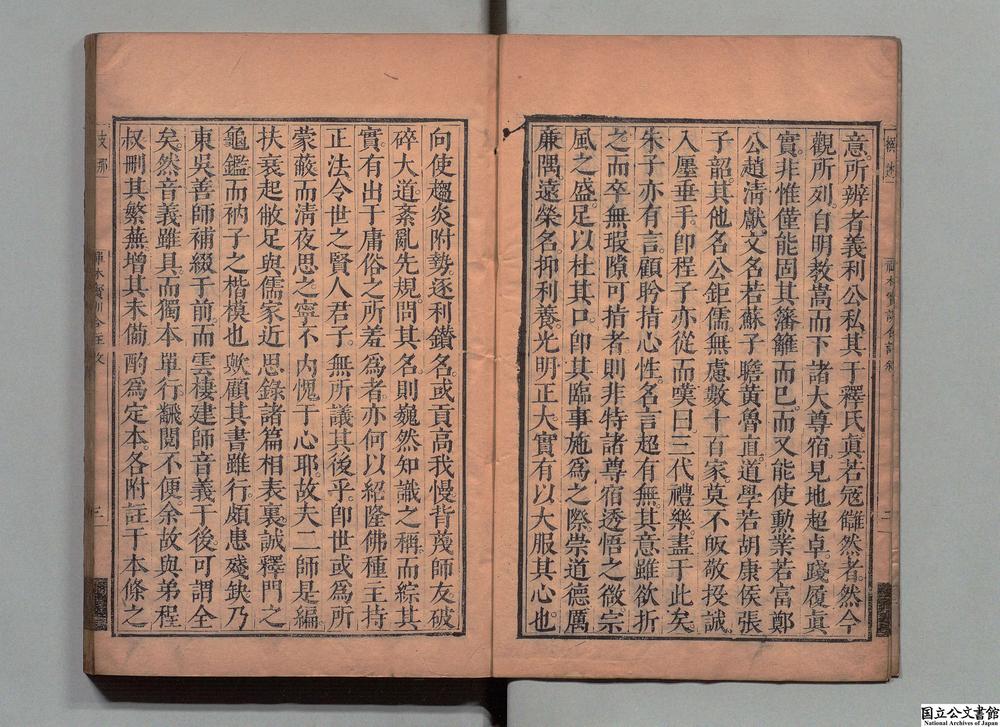 意。所辨者義利公私。其于釋氏眞若寇讎然者。然今
觀所列。自明教嵩而下。諸大尊宿。見地超卓。踐履眞
實。非惟僅能固其籓籬而已。而又能使勳業若富鄭
公趙清獻。文名若蘇子瞻黃魯直。道學若胡康侯張
子韶。其他名公鉅儒。無慮數十百家。莫不皈敬投誠。
入壥垂手。卽程子亦從而嘆曰。三代禮樂。盡于此矣。
朱子亦有言。顧聆指心性。名言超有無。其意雖欲折
之。而卒無瑕隙可指者。則非特諸尊宿透悟之微。宗
風之盛。足以杜其口。卽其臨事施爲之際。崇道德。厲
廉隅。遠榮名。抑利養。光明正大。實有以大服其心也。
向使趨炎附勢。逐利鑽名。或貢高我慢。背蔑師友。破
碎大道。紊亂先規。問其名。則巍然知識之稱。而綜其
實。有出于庸俗之所羞爲者。亦何以紹隆佛種。主持
正法。令世之賢人君子。無所議其後乎。卽世或爲所
蒙蔽。而清夜思之。寧不內愧于心耶。故夫二師是編。
扶衰起敝。足與儒家近思錄諸篇相表裏。誠釋門之
龜鑑。而衲子之楷模也歟。顧其書雖行。頗患殘缺。乃
東吳善師補綴于前。而雲棲建師音義于後。可謂全
矣。然音義雖具。而獨本單行。飜閱不便。余故與弟程
叔刪其繁蕪。增其未備。酌爲定本。各附註于本條之
二
三
国立公文書館
National Archives of Japan